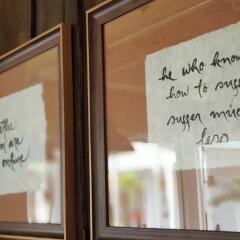 the
are
he who know
how to suffe
suffer muc
less